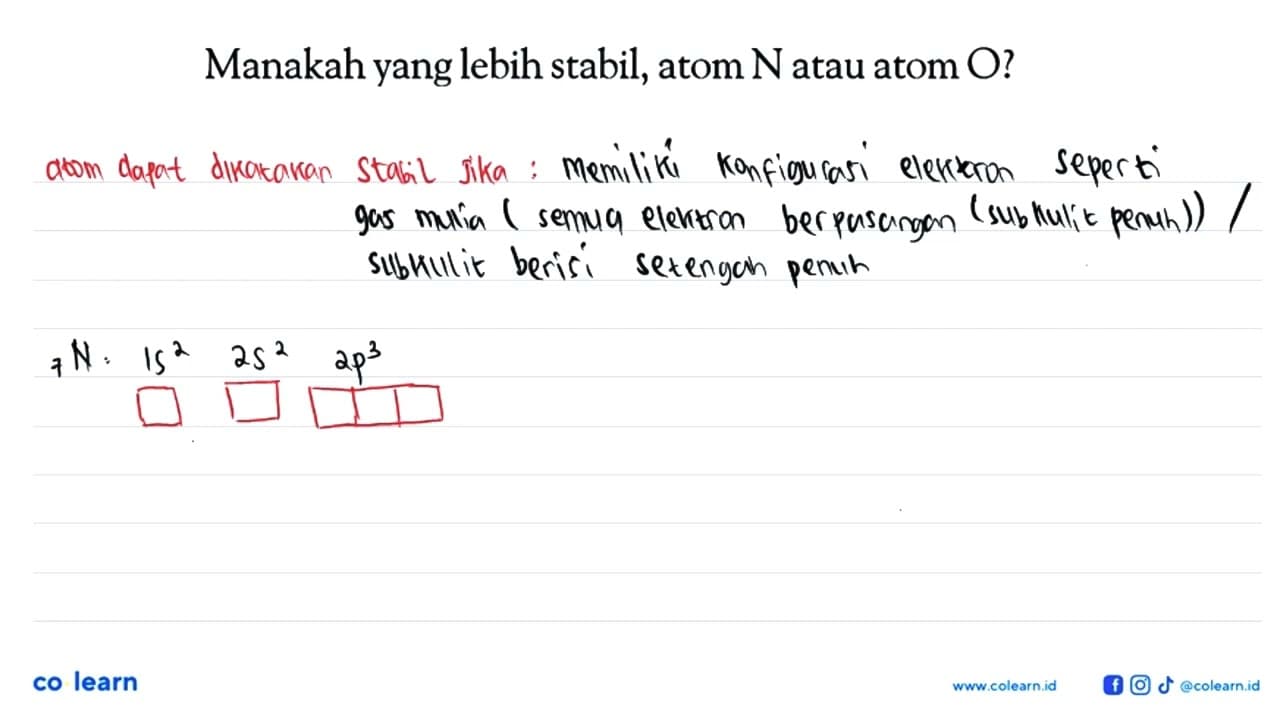 Manakah yang lebih stabil, atom N atau atom O?
atom dapat dikatakan stabil jika : memiliki konfigurasi elektron seperti
gas mulia ( semua elektron berpasangan (subkulit penuh)) /
subkulit berisi setengah penuh
₇N : 1s² 2s² 2p³
co learn
www.colearn.id @colearn.id